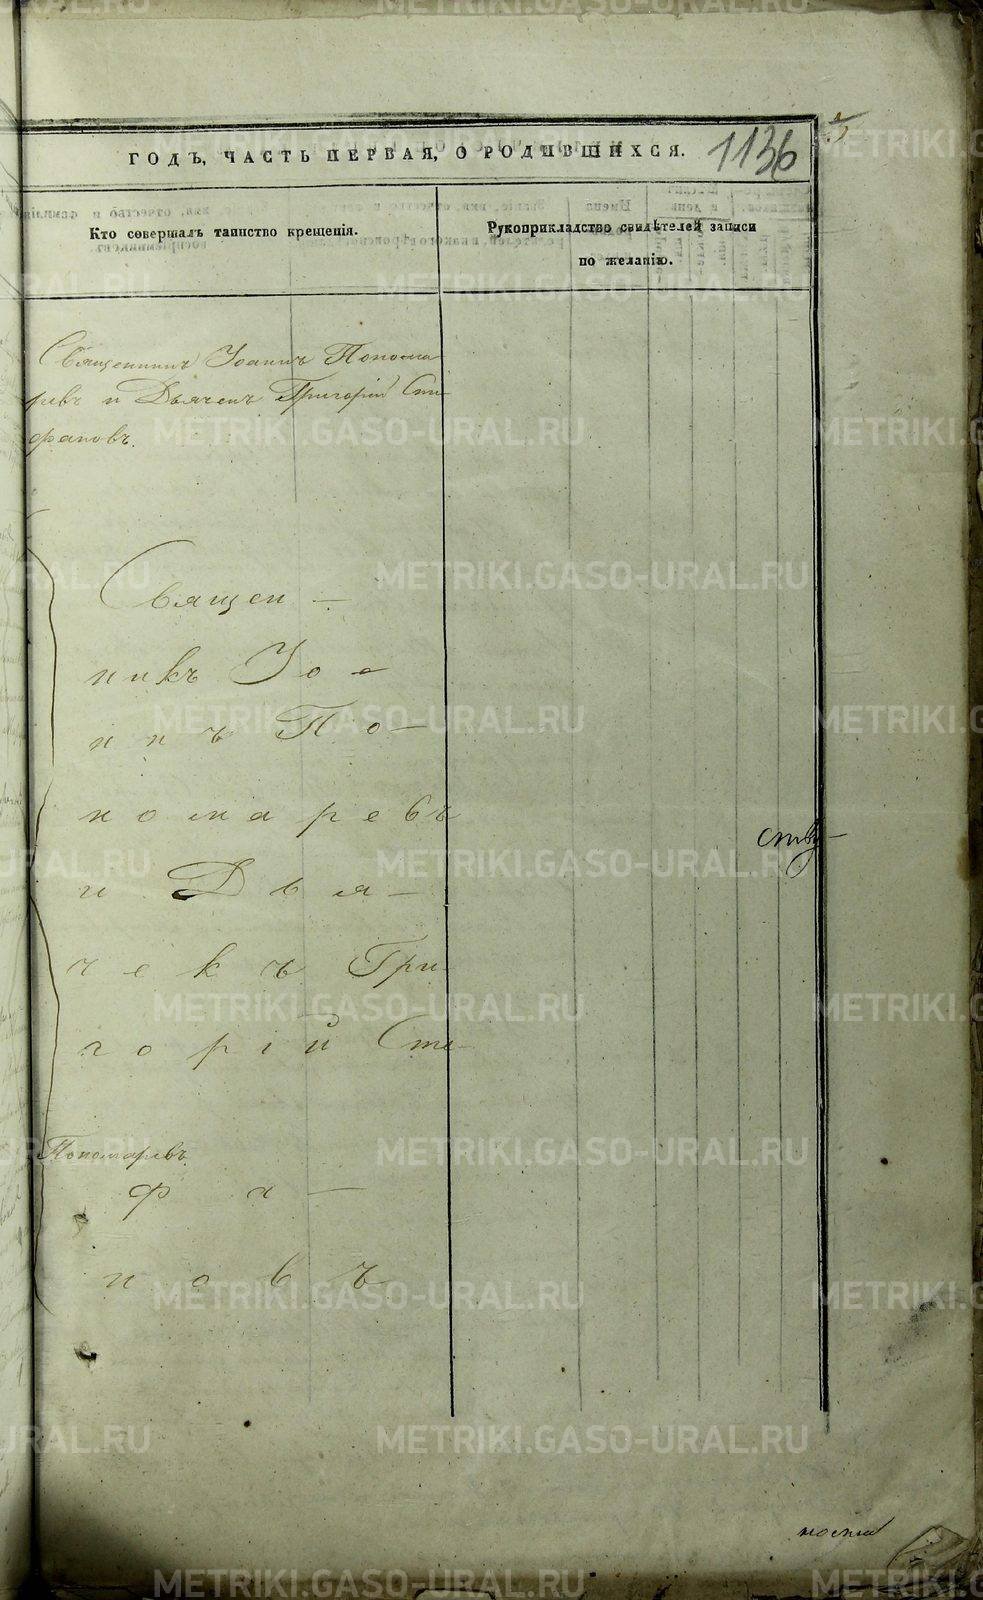 ГОДЪ, ЧАСТЬ ПЕРВАЯ, О РОДИВШИХСЯ. 1136 5
Кто совершалъ таинство крещенія.
Рукоприкладство свидѣтелей записи
по желанію.
Священникъ Іоаннъ Понома
ревъ и Дьячекъ Григорій Сте-
фановъ.
Священ-
никъ Іоа
ннъ По-
номаревъ
и Дья-
чекъ Гри
горій Сте-
Пономаревъ
фа-
новъ
METRIKI.GASO-URAL.RU